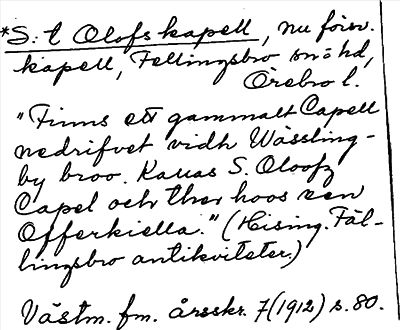 *S:t Olofs kapell, nu försv.
kapell, Fellingsbro sn o hd,
Örebro l.
"Finns ett gammalt Capell
nedrifvet vidh Wässling-
by broo. Kallas S. Oloofz
Capel och ther hoos een
Offerkiella." (Hising. Fäl-
lingsbro antikviteter.)
Västm. fm. årsskr. 7 (1912) s. 80.